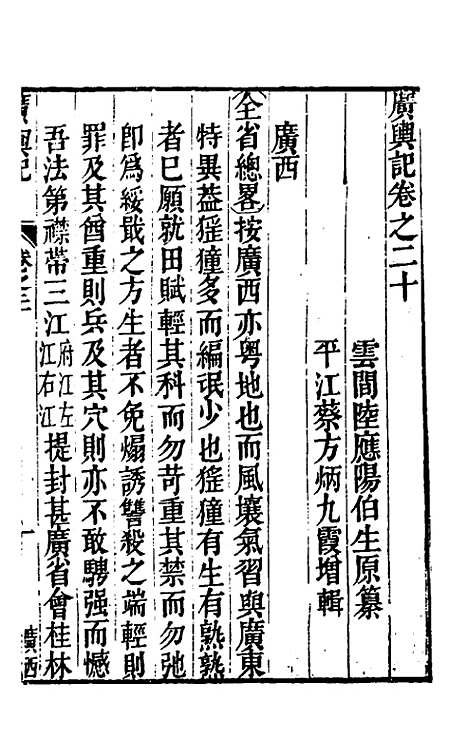 廣輿記卷之二十
雲間陸應陽伯生原纂
平江蔡方炳九霞增輯
廣西
全省總畧按廣西亦粤地也而風壤氣習與廣東
特異葢猺獞多而編氓少也猺獞有生有熟熟
者巳願就田賦輕其科而勿苛重其禁而勿弛
卽爲綏戢之方生者不免煽誘讐殺之端輕則
罪及其酋重則兵及其穴則亦不敢騁强而憾
吾法第襟帶三江府江左江右江提封甚廣省會桂林
廣輿記
卷之二十
一
廣西